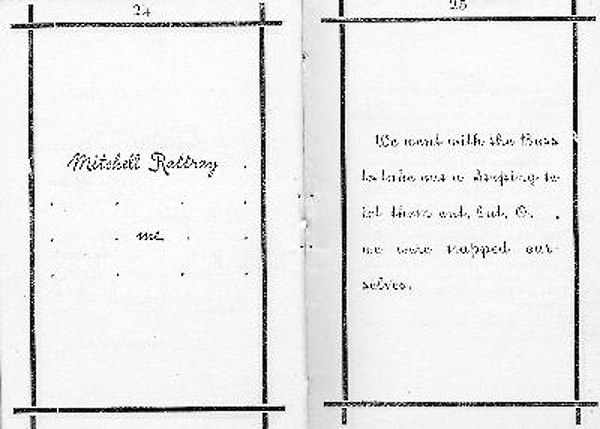 24
Mitchell Rattray
me
25
We went with the Boss
to take out a Shifting to
let them out, but, O.
we were trapped our-
selves.